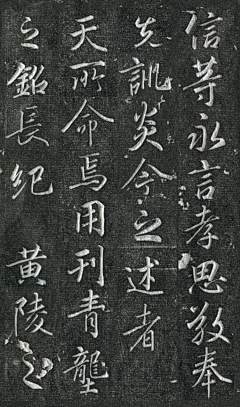 信等永言孝思敬奉
先訓炎令之述者
天所命焉用刊青壟
之銘長紀 黃陵之